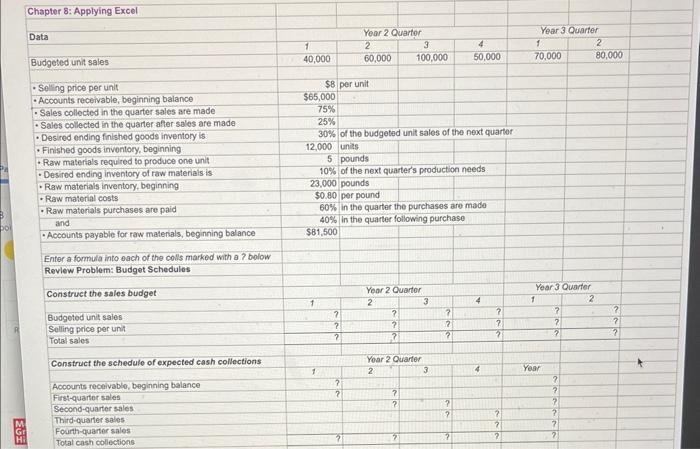 Chapter 8: Applying Excel
Data Year 2 Quarter Year 3 Quarter
1 2 3 4 1 2
Budgeted unit sales 40,000 60,000 100,000 50,000 70,000 80,000
• Selling price per unit $8 per unit
• Accounts receivable, beginning balance $65,000
• Sales collected in the quarter sales are made 75%
• Sales collected in the quarter after sales are made 25%
• Desired ending finished goods inventory is 30% of the budgeted unit sales of the next quarter
• Finished goods inventory, beginning 12,000 units
• Raw materials required to produce one unit 5 pounds
• Desired ending inventory of raw materials is 10% of the next quarter's production needs
• Raw materials inventory, beginning 23,000 pounds
• Raw material costs $0.80 per pound
• Raw materials purchases are paid 60% in the quarter the purchases are made
and 40% in the quarter following purchase
• Accounts payable for raw materials, beginning balance $81,500
Enter a formula into each of the cells marked with a ? below
Review Problem: Budget Schedules
Construct the sales budget Year 2 Quarter Year 3 Quarter
1 2 3 4 1 2
Budgeted unit sales ? ? ? ? ? ?
Selling price per unit ? ? ? ? ? ?
Total sales ? ? ? ? ? ?
Construct the schedule of expected cash collections Year 2 Quarter
1 2 3 4 Year
Accounts receivable, beginning balance ? ?
First-quarter sales ? ? ?
Second-quarter sales ? ? ?
Third-quarter sales ? ? ?
Fourth-quarter sales ? ?
Total cash collections ? ? ? ? ?
Mc
Gr
Hi